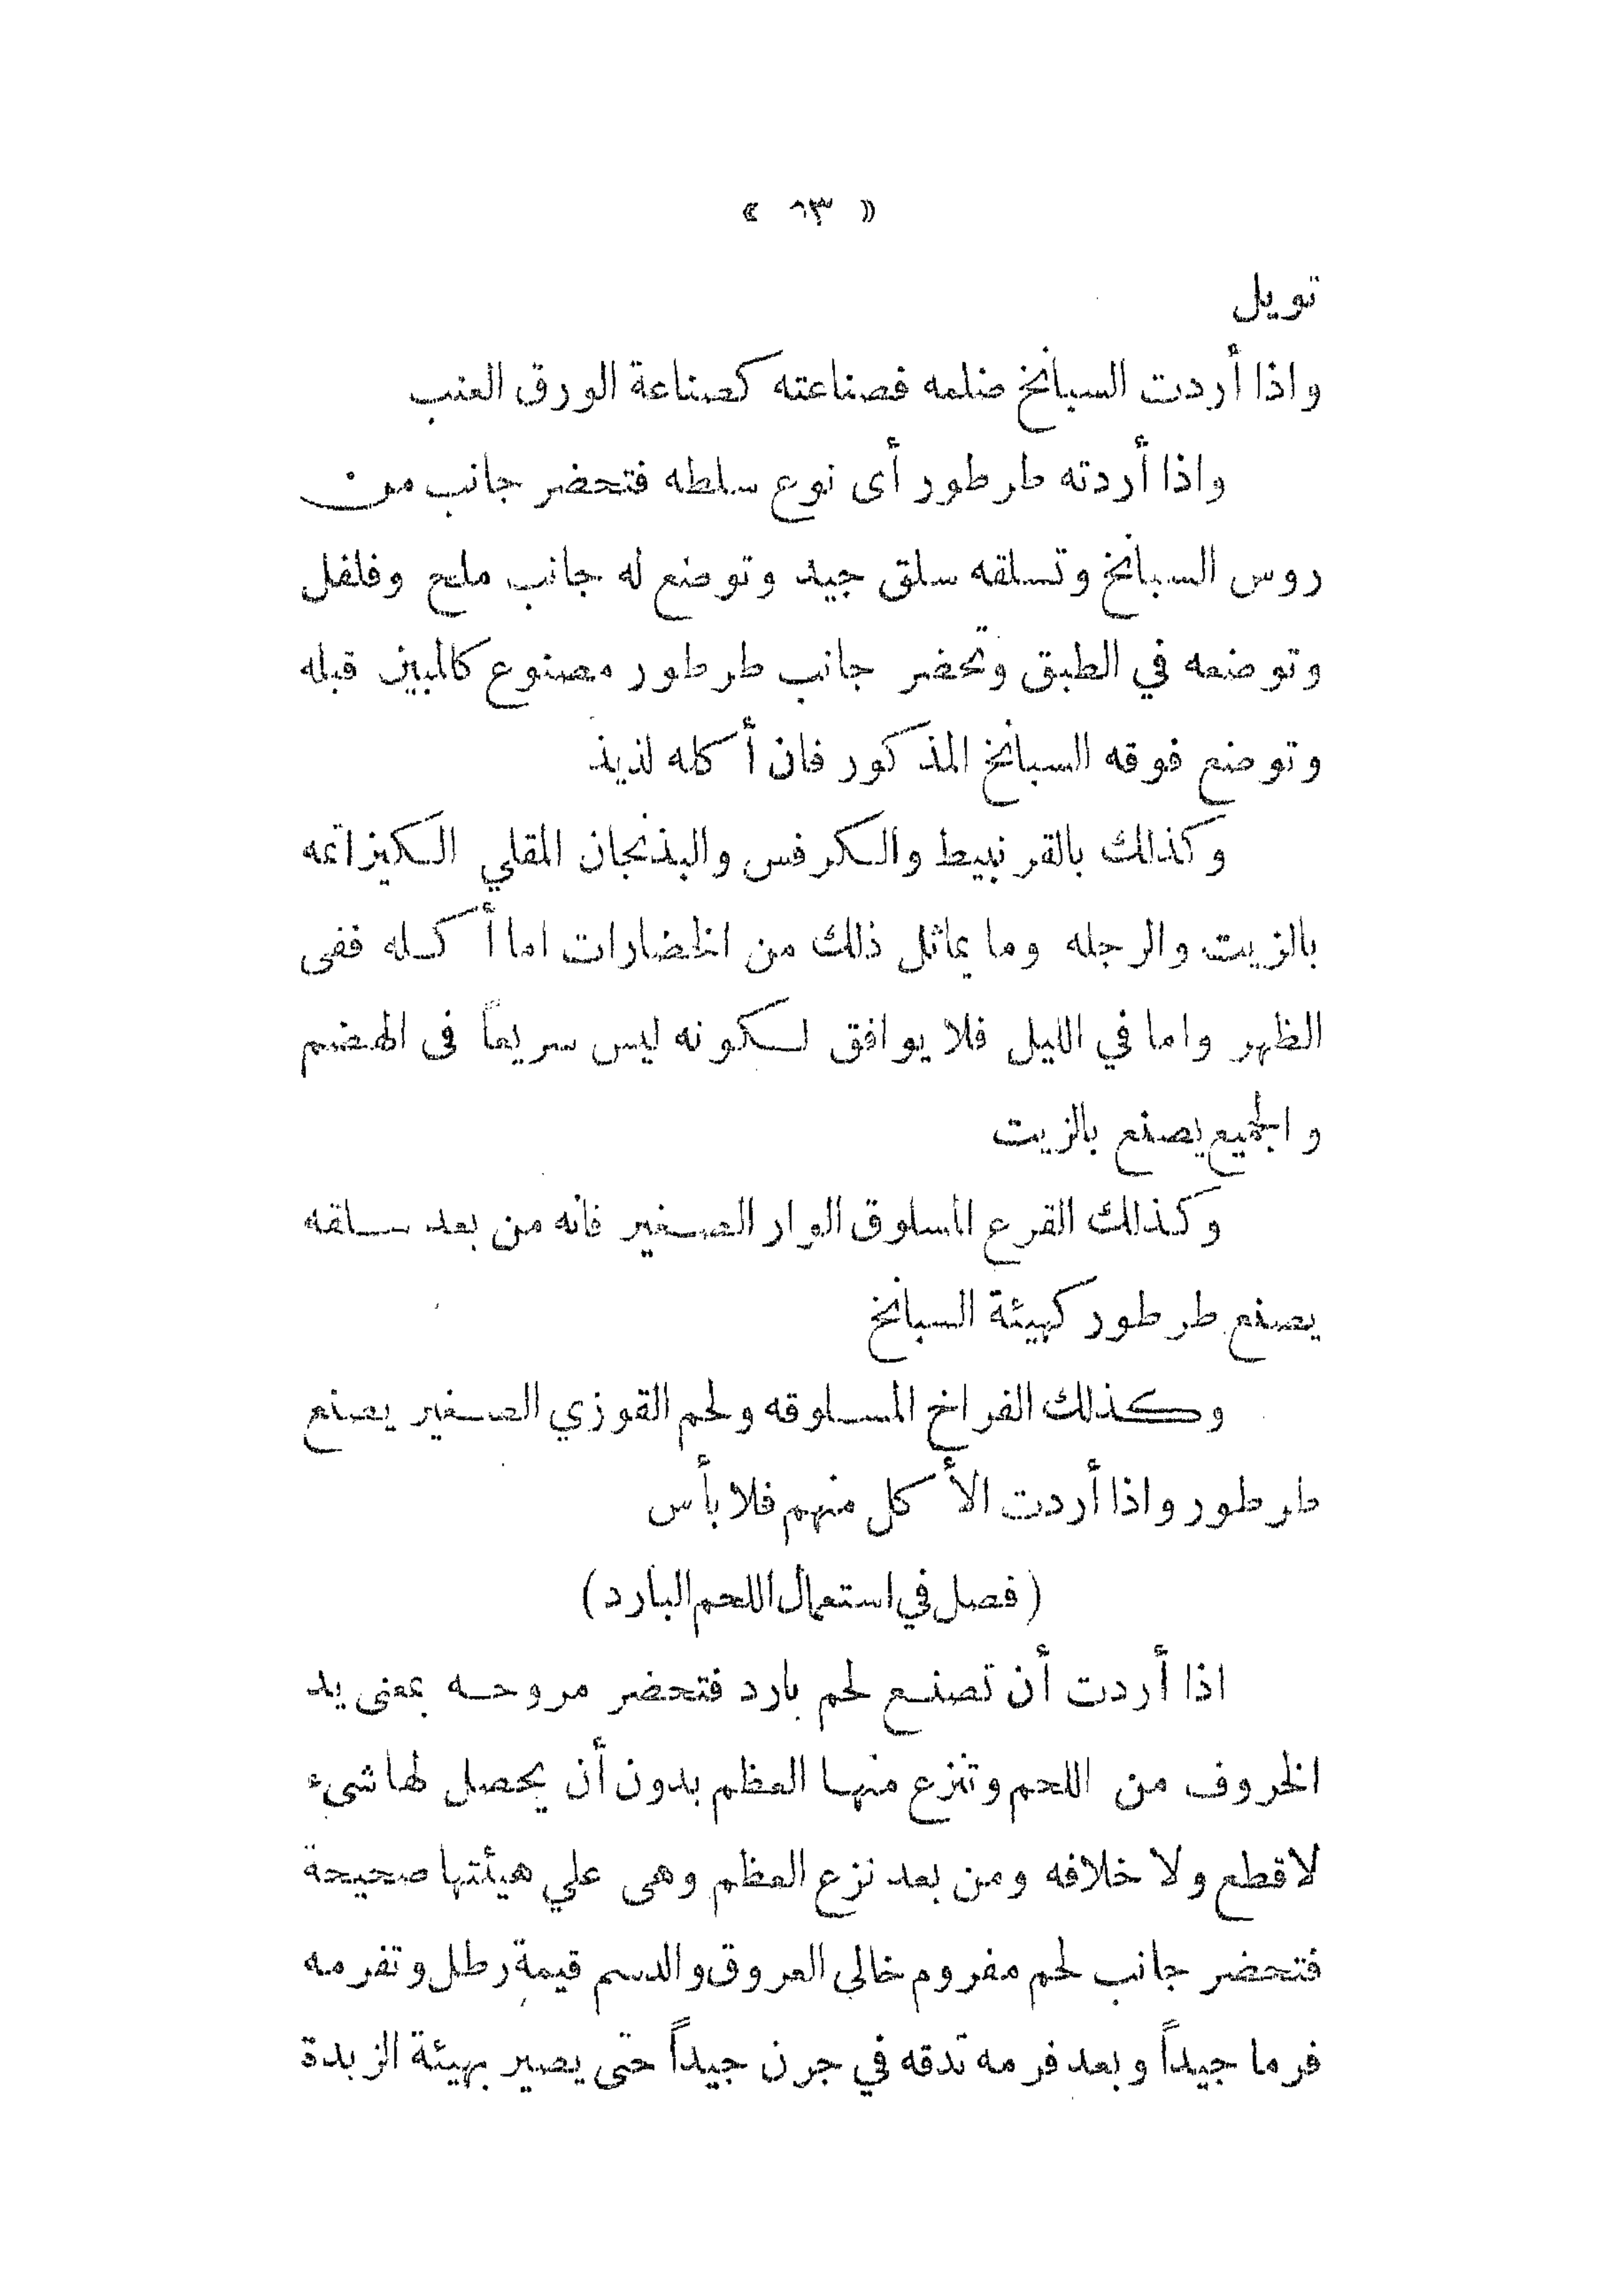 « ٦٣ »
تويل
واذا أردت السبانخ ضلمه فصناعته كصناعة الورق العنب
واذا أردته طرطور أى نوع سلطه فتحضر جانب من
روس السبانخ وتسلقه سلق جيد وتوضع له جانب ملح وفلفل
وتوضعه في الطبق وتحضر جانب طرطور مصنوع كالمبين قبله
وتوضع فوقه السبانخ المذكور فان أكله لذيذ
وكذلك بالقرنبيط والكرفس والبذنجان المقلي الكيزاتمه
بالزيت والرجله وما يماثل ذلك من الخضارات اما أكله ففى
الظهر واما في الليل فلا يوافق لكونه ليس سريعاً فى الهضم
والجميع يصنع بالزيت
وكذلك القرع المسلوق الوار الصغير فانه من بعد سلقه
يصنع طرطور كهيئة السبانخ
وكذلك الفراخ المسلوقه ولحم القوزي الصغير يصنع
طرطور واذا أردت الأكل منهم فلا بأس
(فصل في استعمال اللحم البارد)
اذا أردت أن تصنع لحم بارد فتحضر مروحه بمعنى يد
الخروف من اللحم وتنزع منها العظم بدون أن يحصل لها شىء
لا قطع ولا خلافه ومن بعد نزع العظم وهى علي هيئتها صحيحة
فتحضر جانب لحم مفروم خالى العروق والدسم قيمة رطل وتفرمه
فرما جيداً وبعد فرمه تدقه في جرن جيداً حتى يصير بهيئة الزبدة